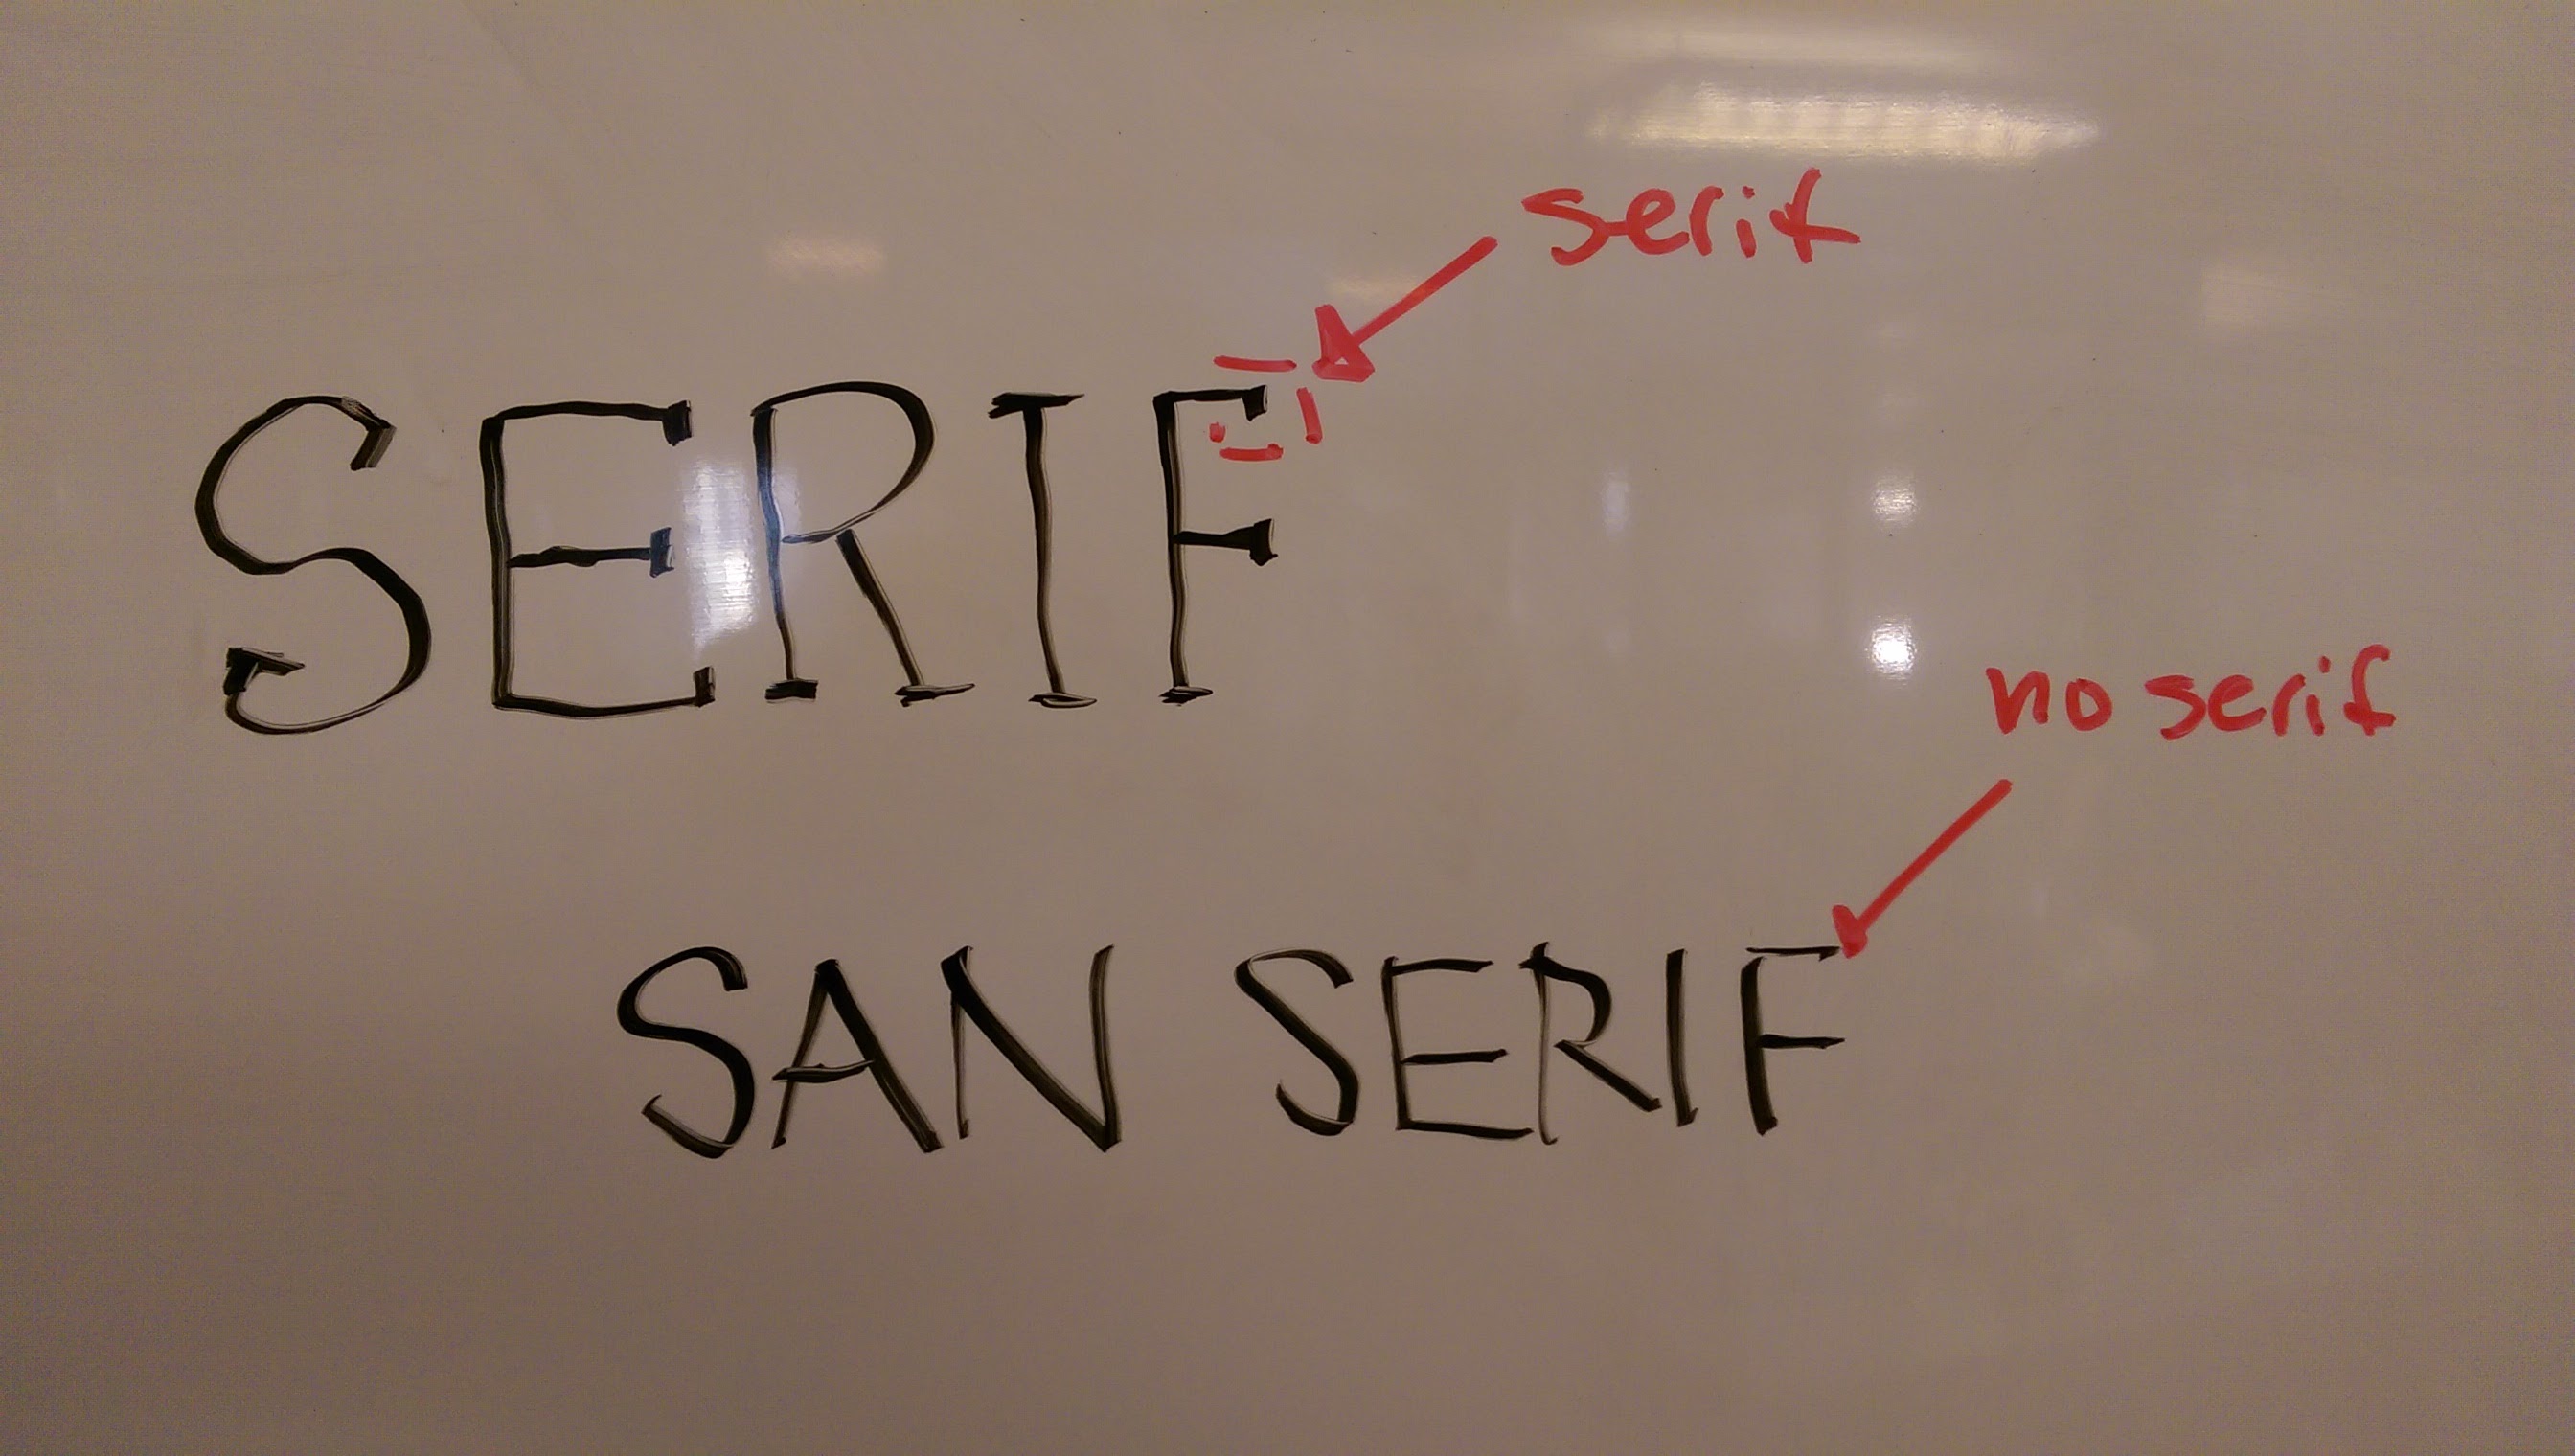 serif
SERIF
no serif
SAN SERIF